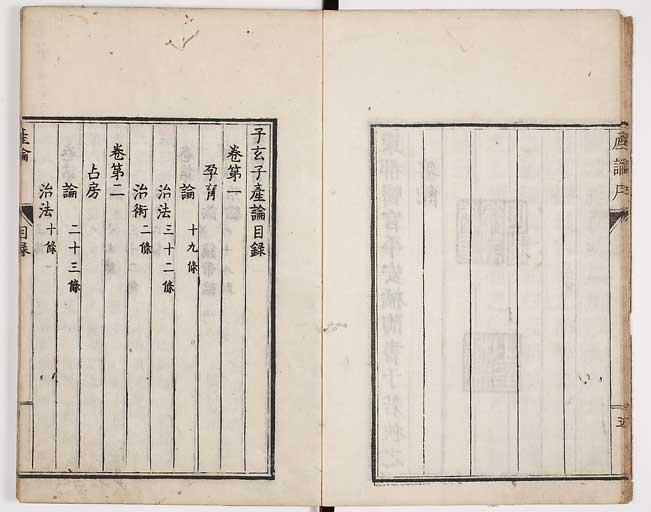 産論序
五
子玄子産論目録
卷第一
孕育
論 十九條
治法 三十二條
治術 二條
卷第二
占房
論 二十三條
治法 十條
産論
目録